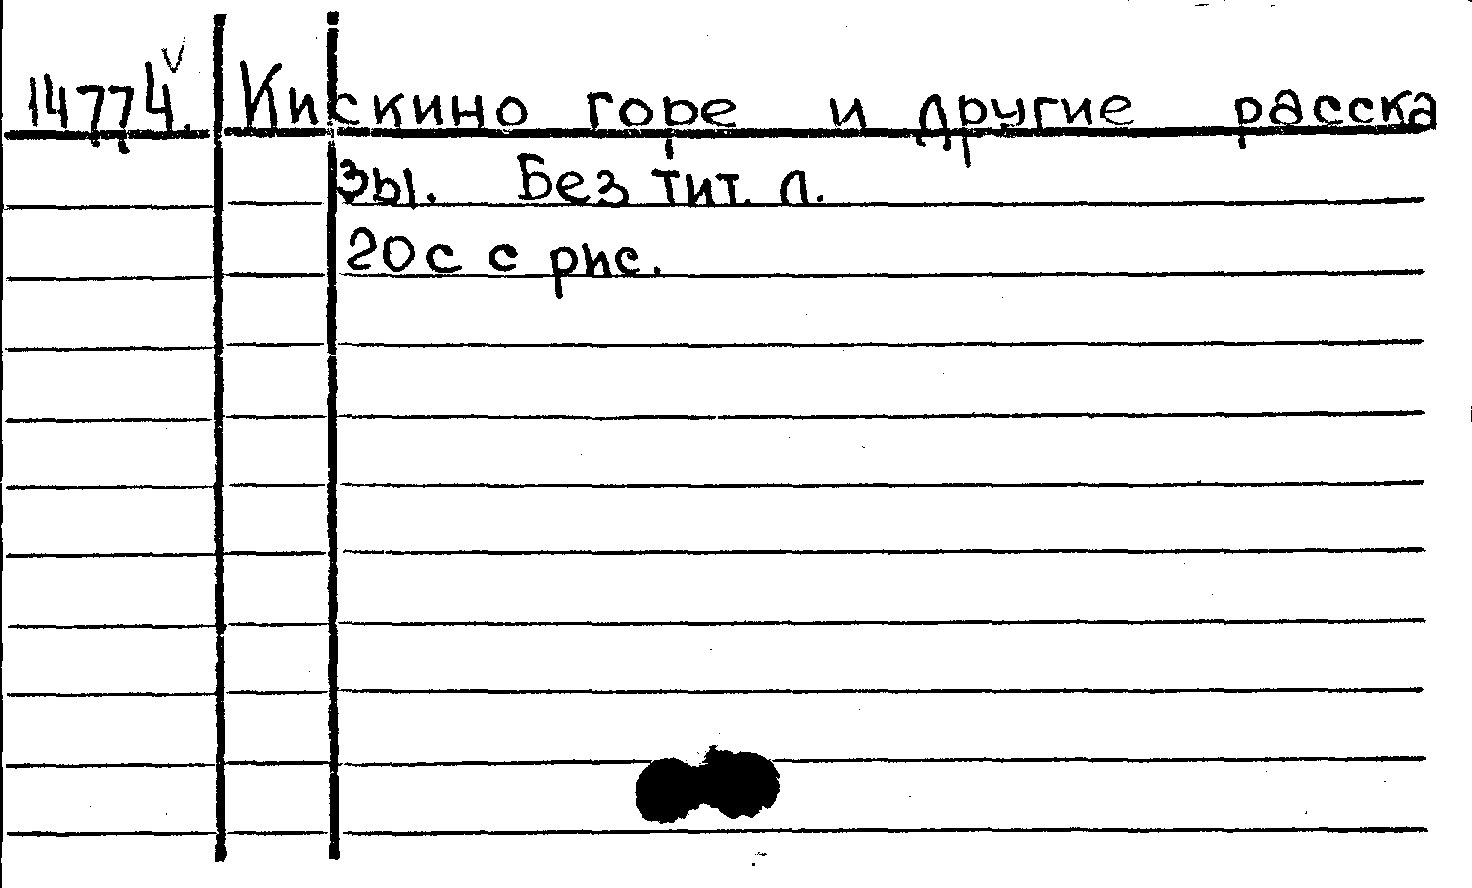 14774. V Кискино горе и другие расска
зы. Без тит. л.
20с с рис.